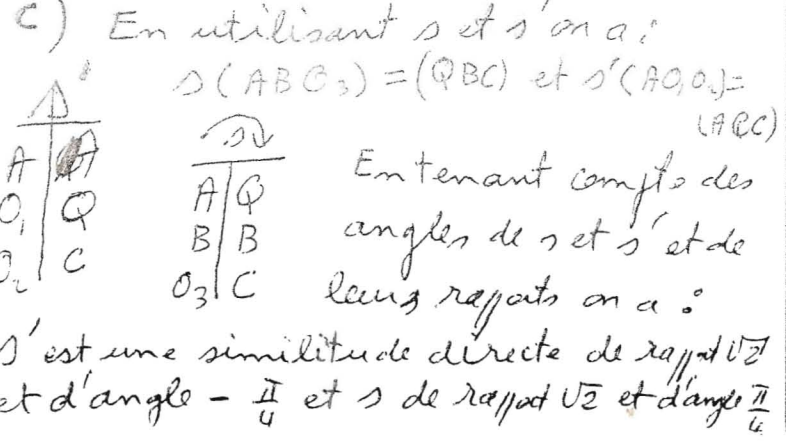 c) En utilisant s et s' on a :
s(ABO₃) = (QBC) et s'(AO₁O₂) =
(AQC)
s'
A | A
O₁ | Q
O₂ | C
s
A | Q
B | B
O₃ | C
En tenant compte des
angles de s et s' et de
leurs rapports on a :
s' est une similitude directe de rapport √2
et d'angle - π/4 et s de rapport √2 et d'angle π/4